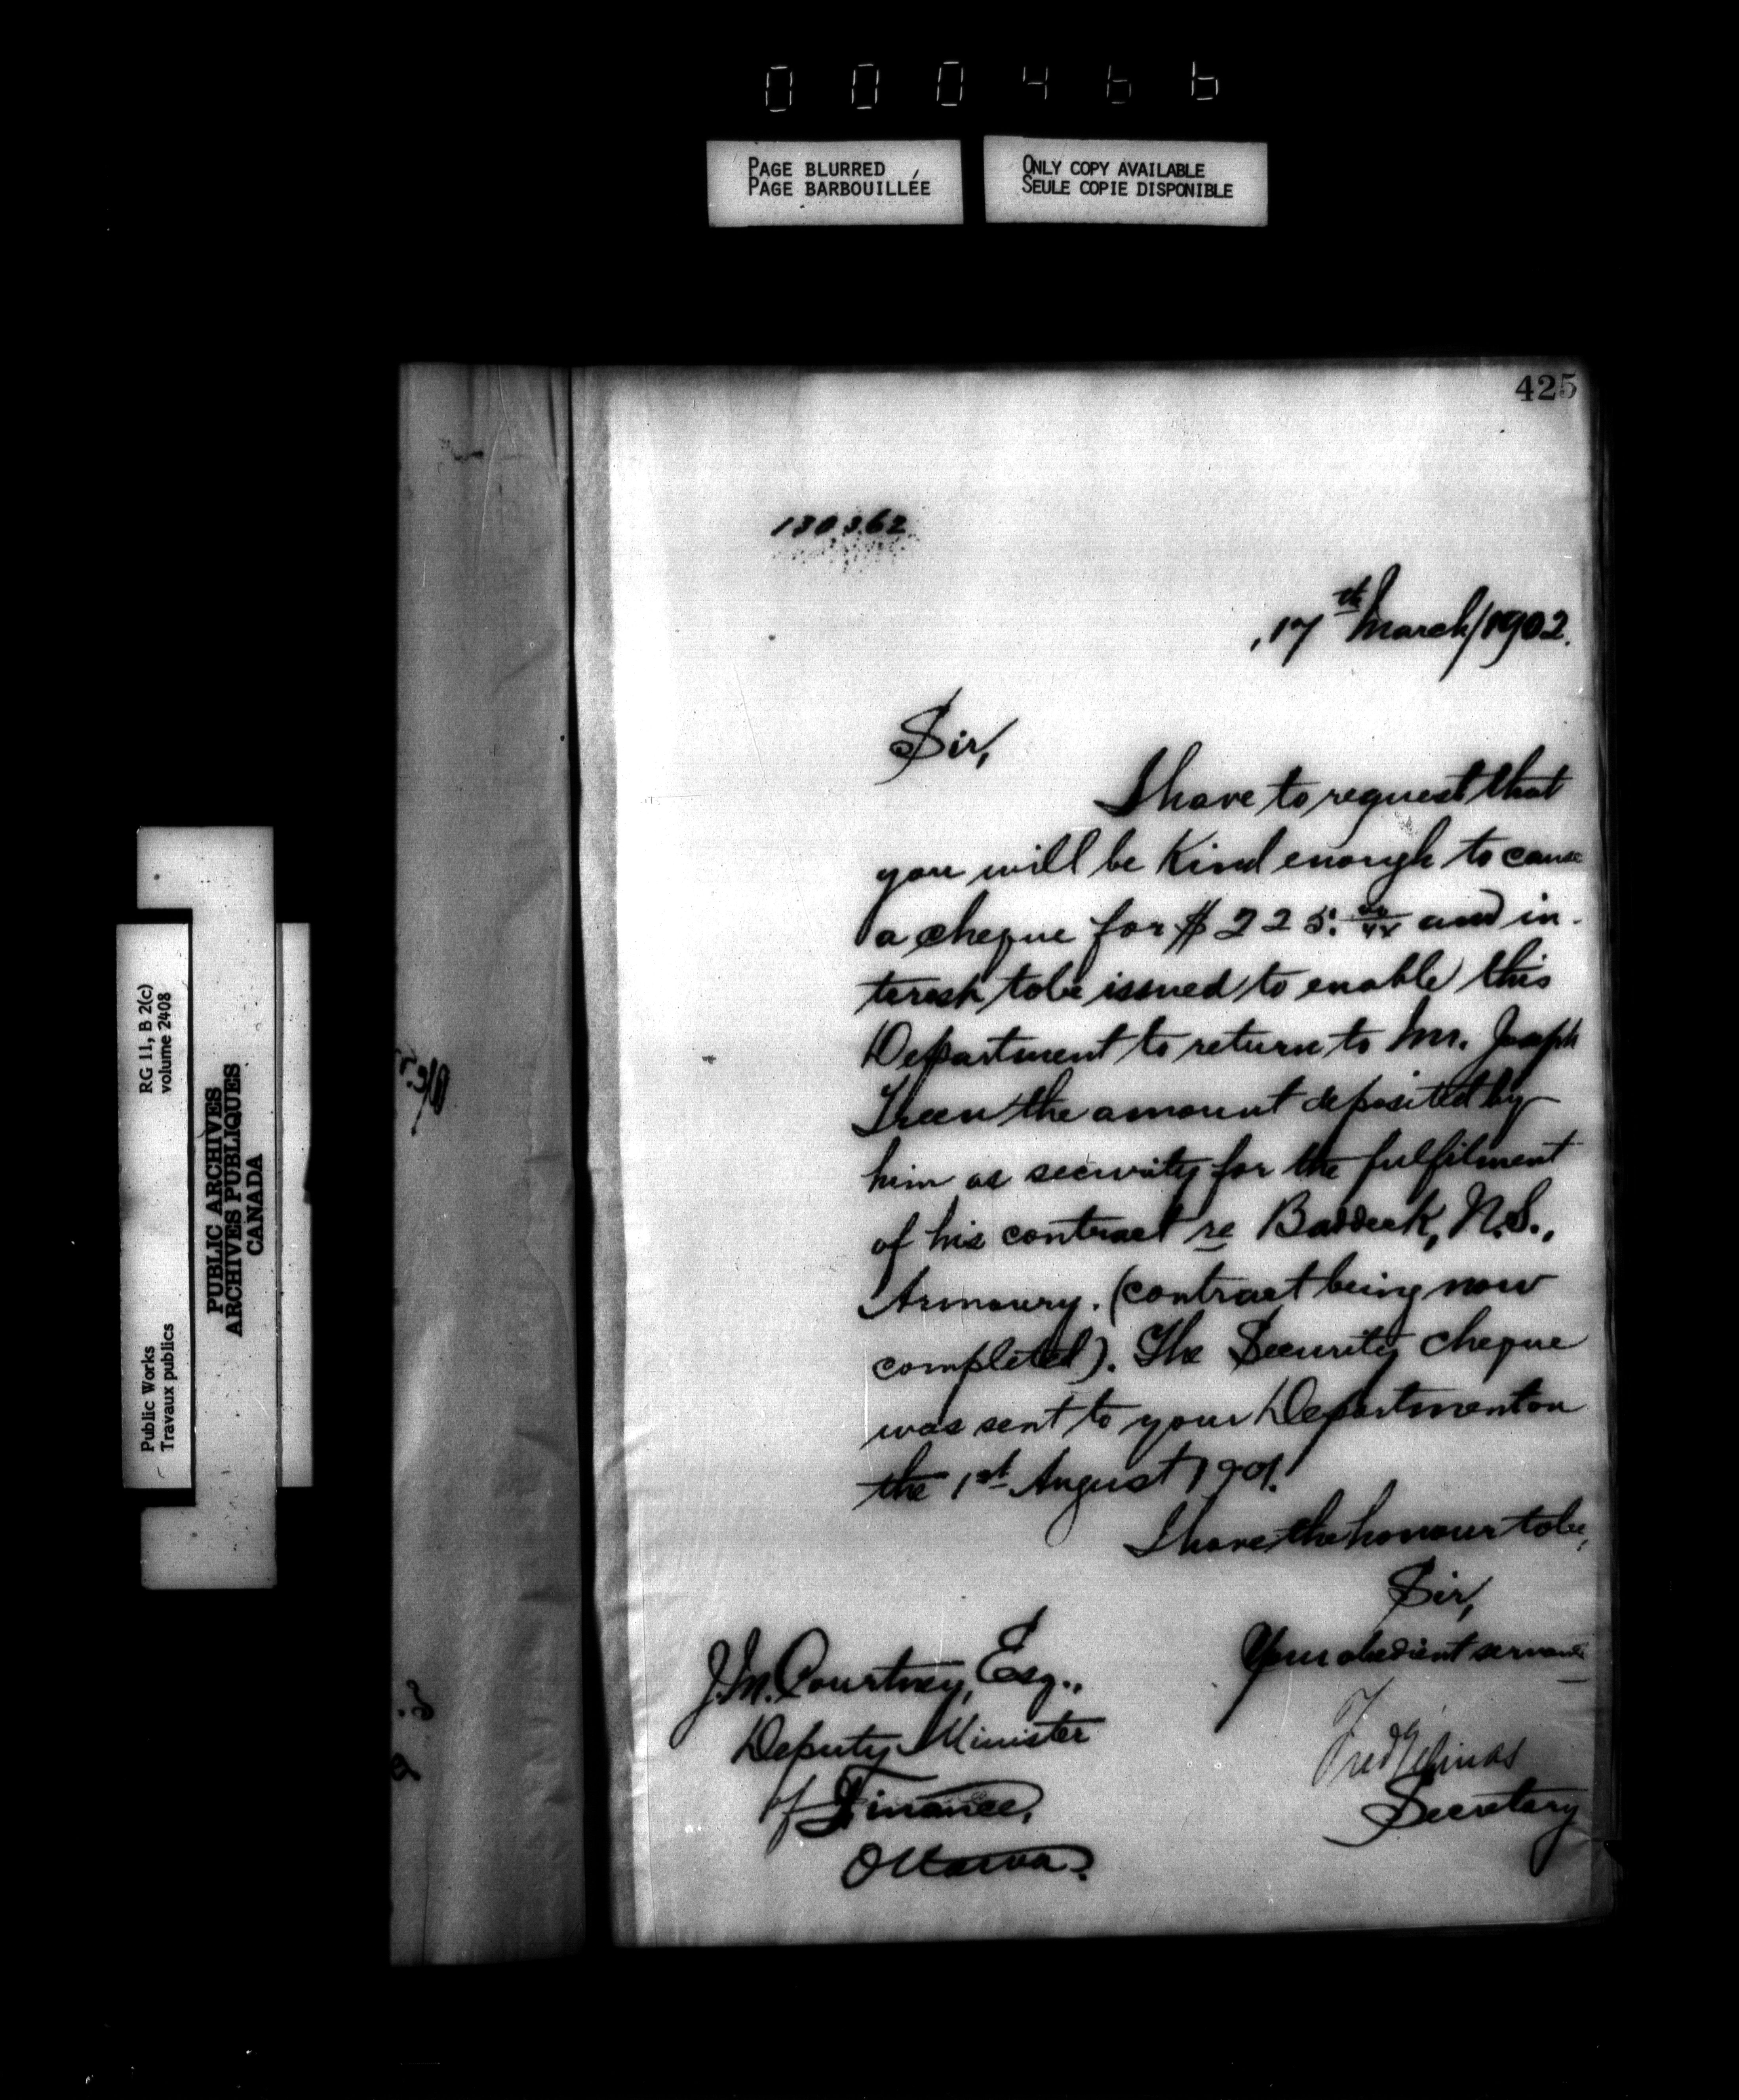 000466
PAGE BLURRED
PAGE BARBOUILLÉE
ONLY COPY AVAILABLE
SEULE COPIE DISPONIBLE
425
130362
17th March/1902.
Sir,
I have to request that
you will be Kind enough to cause
a cheque for $225. 00/xx and in-
terest to be issued to enable this
Department to return to Mr. Joseph
the amount deposited by
him as security for the fulfilment
of his contract re Baddeck, N.S.,
Armoury. (contract being now
completed). The Security cheque
was sent to your Department on
the 1st August 1901.
I have the honour to be,
Sir,
Your obedient servant
Fred Gélinas
Secretary
J.M. Courtney, Esq.,
Deputy Minister
of Finance,
Ottawa.
Public Works
Travaux publics
RG 11, B 2(c)
volume 2408
PUBLIC ARCHIVES
ARCHIVES PUBLIQUES
CANADA